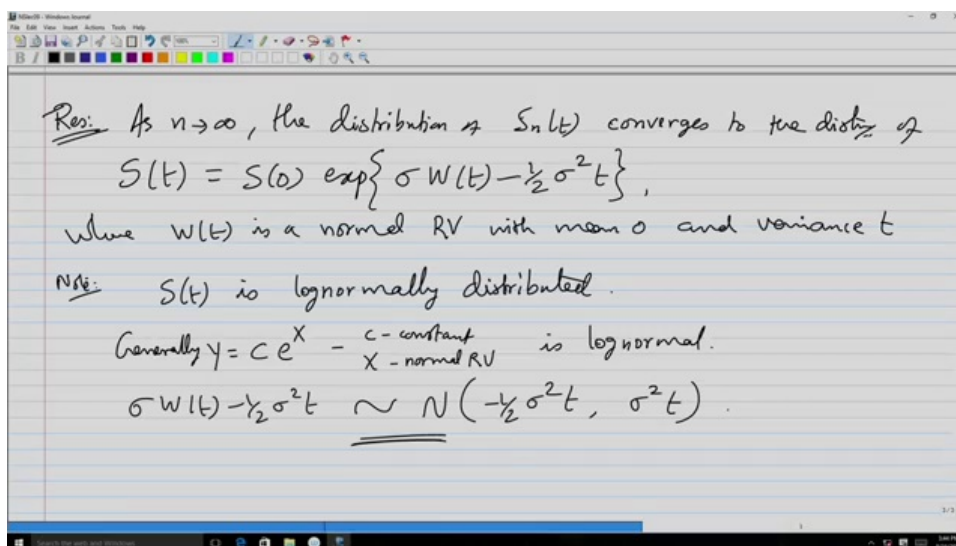 NSlec09 - Windows Journal
File Edit View Insert Actions Tools Help
Res: As n→∞, the distribution of Sn(t) converges to the distn of
S(t) = S(0) exp{σ W(t) - ½ σ² t},
where W(t) is a normal RV with mean 0 and variance t
Note: S(t) is lognormally distributed.
Generally Y = c e^X - c - constant X - normal RV is lognormal.
σ W(t) - ½ σ² t ~ N(-½ σ² t, σ² t).
3/3
1
Search the web and Windows